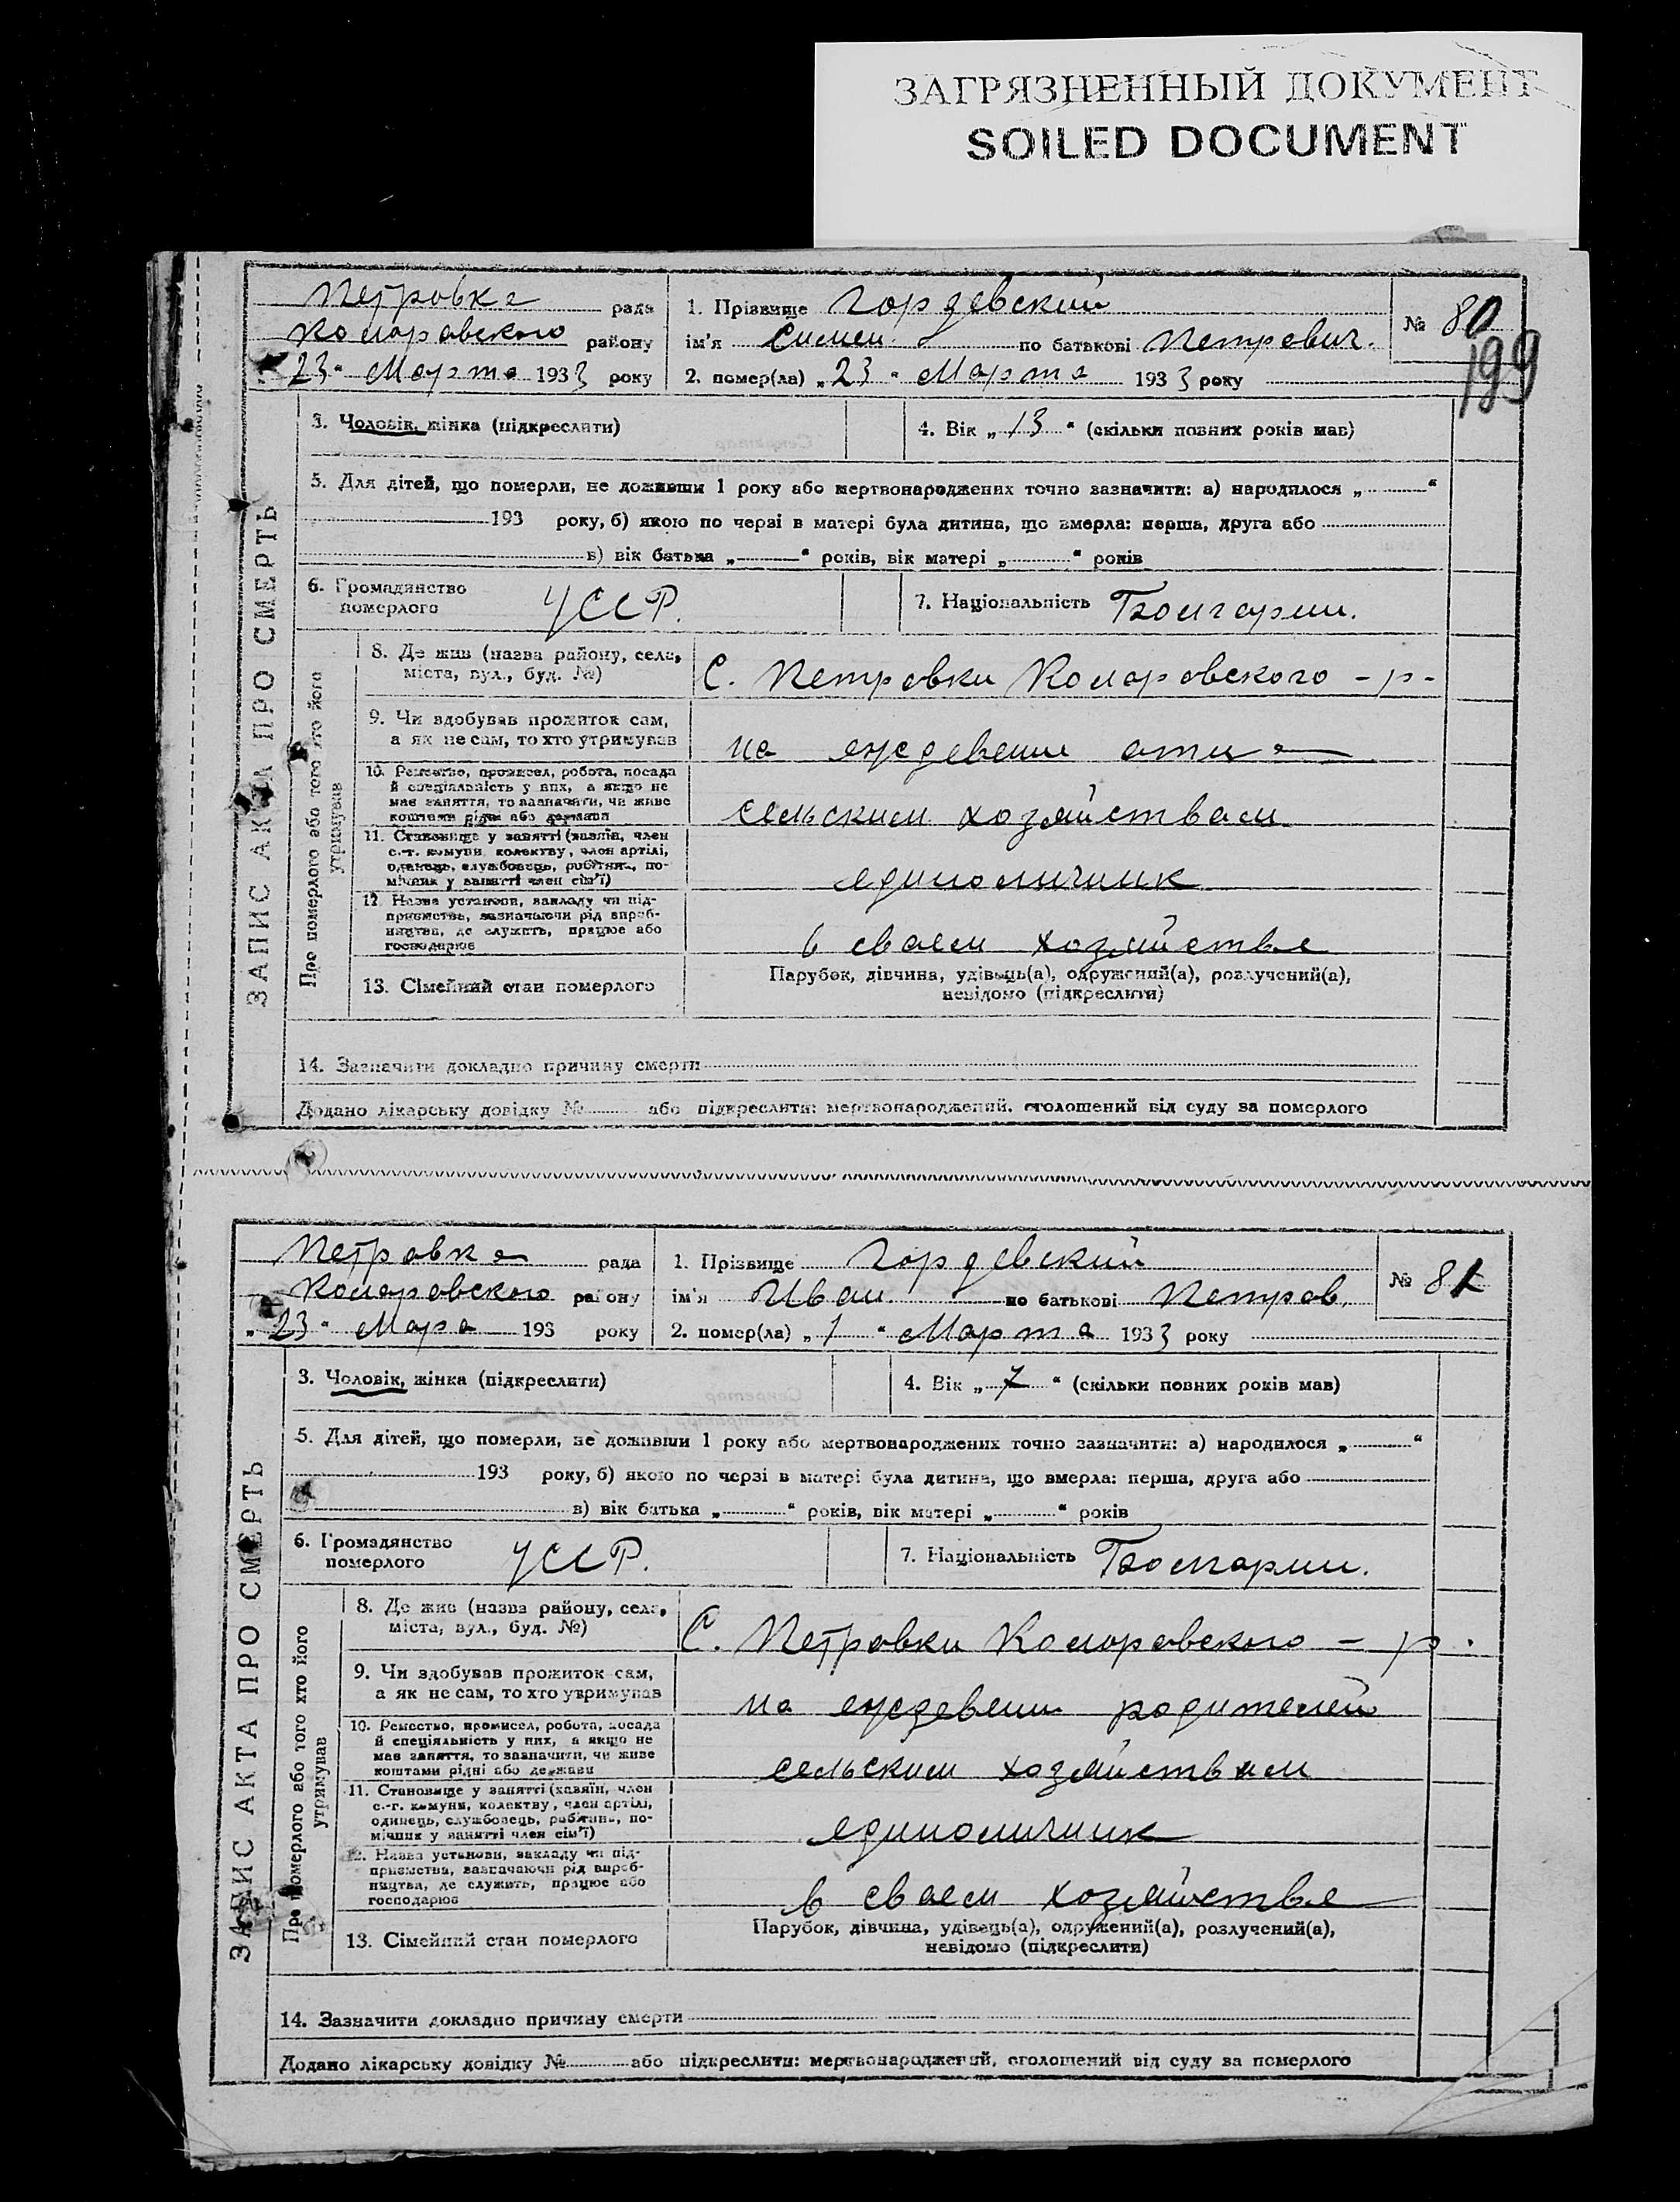 ЗАГРЯЗНЕННЫЙ ДОКУМЕНТ
SOILED DOCUMENT
Петровка рада
Коларовского району
„23“ Марта 1933 року
1. Прізвище Гордевский
ім’я Симен по батькові Петрович.
2. помер(ла) „23“ Марта 1933 року
№ 80
199
ЗАПИС АКТА ПРО СМЕРТЬ
3. Чоловік, жінка (підкреслити)
4. Вік „13“ (скільки повних років мав)
5. Для дітей, що померли, не доживши 1 року або мертвонароджених точно зазначити: а) народилося „ “
193 року, б) якою по черзі в матері була дитина, що вмерла: перша, друга або
в) вік батька „ “ років, вік матері „ “ років
6. Громадянство померлого УССР.
7. Національність Болгарин.
Про померлого або того хто його утримував
8. Де жив (назва району, села,
міста, вул., буд. №)
С. Петровки Коларовского - р-
9. Чи здобував прожиток сам,
а як не сам, то хто утримував
на иждевени отца
10. Ремество, промисел, робота, посада
й спеціяльність у них, а якщо не
має заняття, то зазначити, чи живе
коштами рідні або держави
сельским хозяйствам
11. Становище у занятті (хазяїн, член
с.-г. комуни, колективу, член артілі,
одинець, службовець, робітник, по-
мічник у занятті член сім’ї)
единоличник
12. Назва установи, закладу чи під-
приємства, зазначаючи рід вироб-
ництва, де служить, працює або
господарює
в сваем хозяйстве
13. Сімейний стан померлого
Парубок, дівчина, удівець(а), одружений(а), розлучений(а),
невідомо (підкреслити)
14. Зазначити докладно причину смерти
Додано лікарську довідку № або підкреслити: мертвонароджений, оголошений від суду за померлого
Петровка рада
Коларовского району
„23“ Мара 193 року
1. Прізвище Гордевский
ім’я Иван по батькові Петров.
2. помер(ла) „1“ Марта 1933 року
№ 81
ЗАПИС АКТА ПРО СМЕРТЬ
3. Чоловік, жінка (підкреслити)
4. Вік „7“ (скільки повних років мав)
5. Для дітей, що померли, не доживши 1 року або мертвонароджених точно зазначити: а) народилося „ “
193 року, б) якою по черзі в матері була дитина, що вмерла: перша, друга або
в) вік батька „ “ років, вік матері „ “ років
6. Громадянство померлого УССР.
7. Національність Болгарин.
Про померлого або того хто його утримував
8. Де жив (назва району, села,
міста, вул., буд. №)
С. Петровки Коларовского - р.
9. Чи здобував прожиток сам,
а як не сам, то хто утримував
на иждевени родителей
10. Ремество, промисел, робота, посада
й спеціяльність у них, а якщо не
має заняття, то зазначити, чи живе
коштами рідні або держави
сельским хозяйствам
11. Становище у занятті (хазяїн, член
с.-г. комуни, колективу, член артілі,
одинець, службовець, робітник, по-
мічник у занятті член сім’ї)
единоличник
12. Назва установи, закладу чи під-
приємства, зазначаючи рід вироб-
ництва, де служить, працює або
господарює
в сваем хозяйстве
13. Сімейний стан померлого
Парубок, дівчина, удівець(а), одружений(а), розлучений(а),
невідомо (підкреслити)
14. Зазначити докладно причину смерти
Додано лікарську довідку № або підкреслити: мертвонароджений, оголошений від суду за померлого